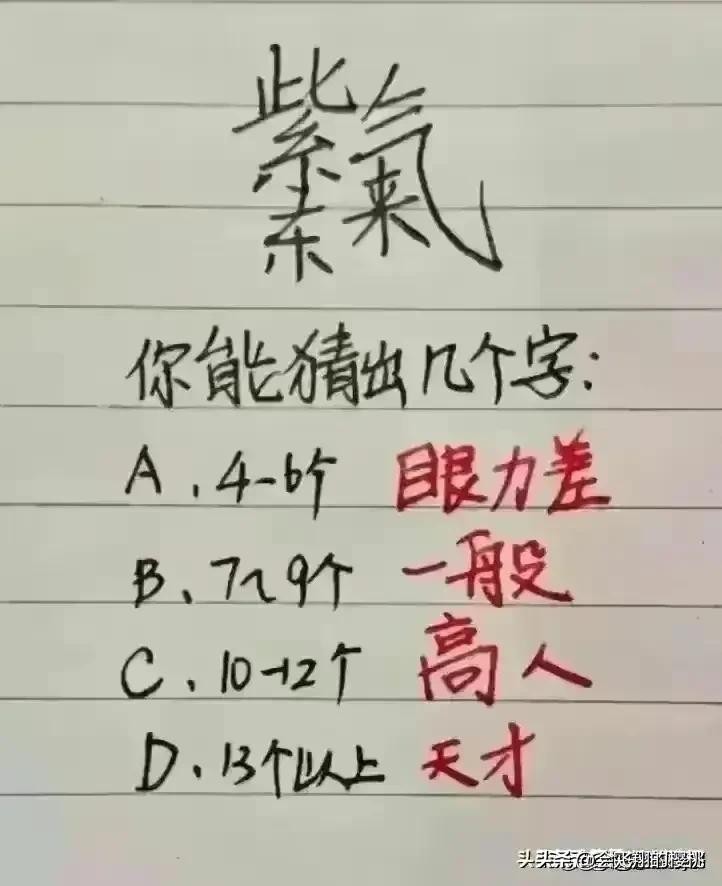 紫氣東来
你能猜出几个字:
A、4-6个 眼力差
B、7~9个 一般
C、10-12个 高人
D、13个以上 天才